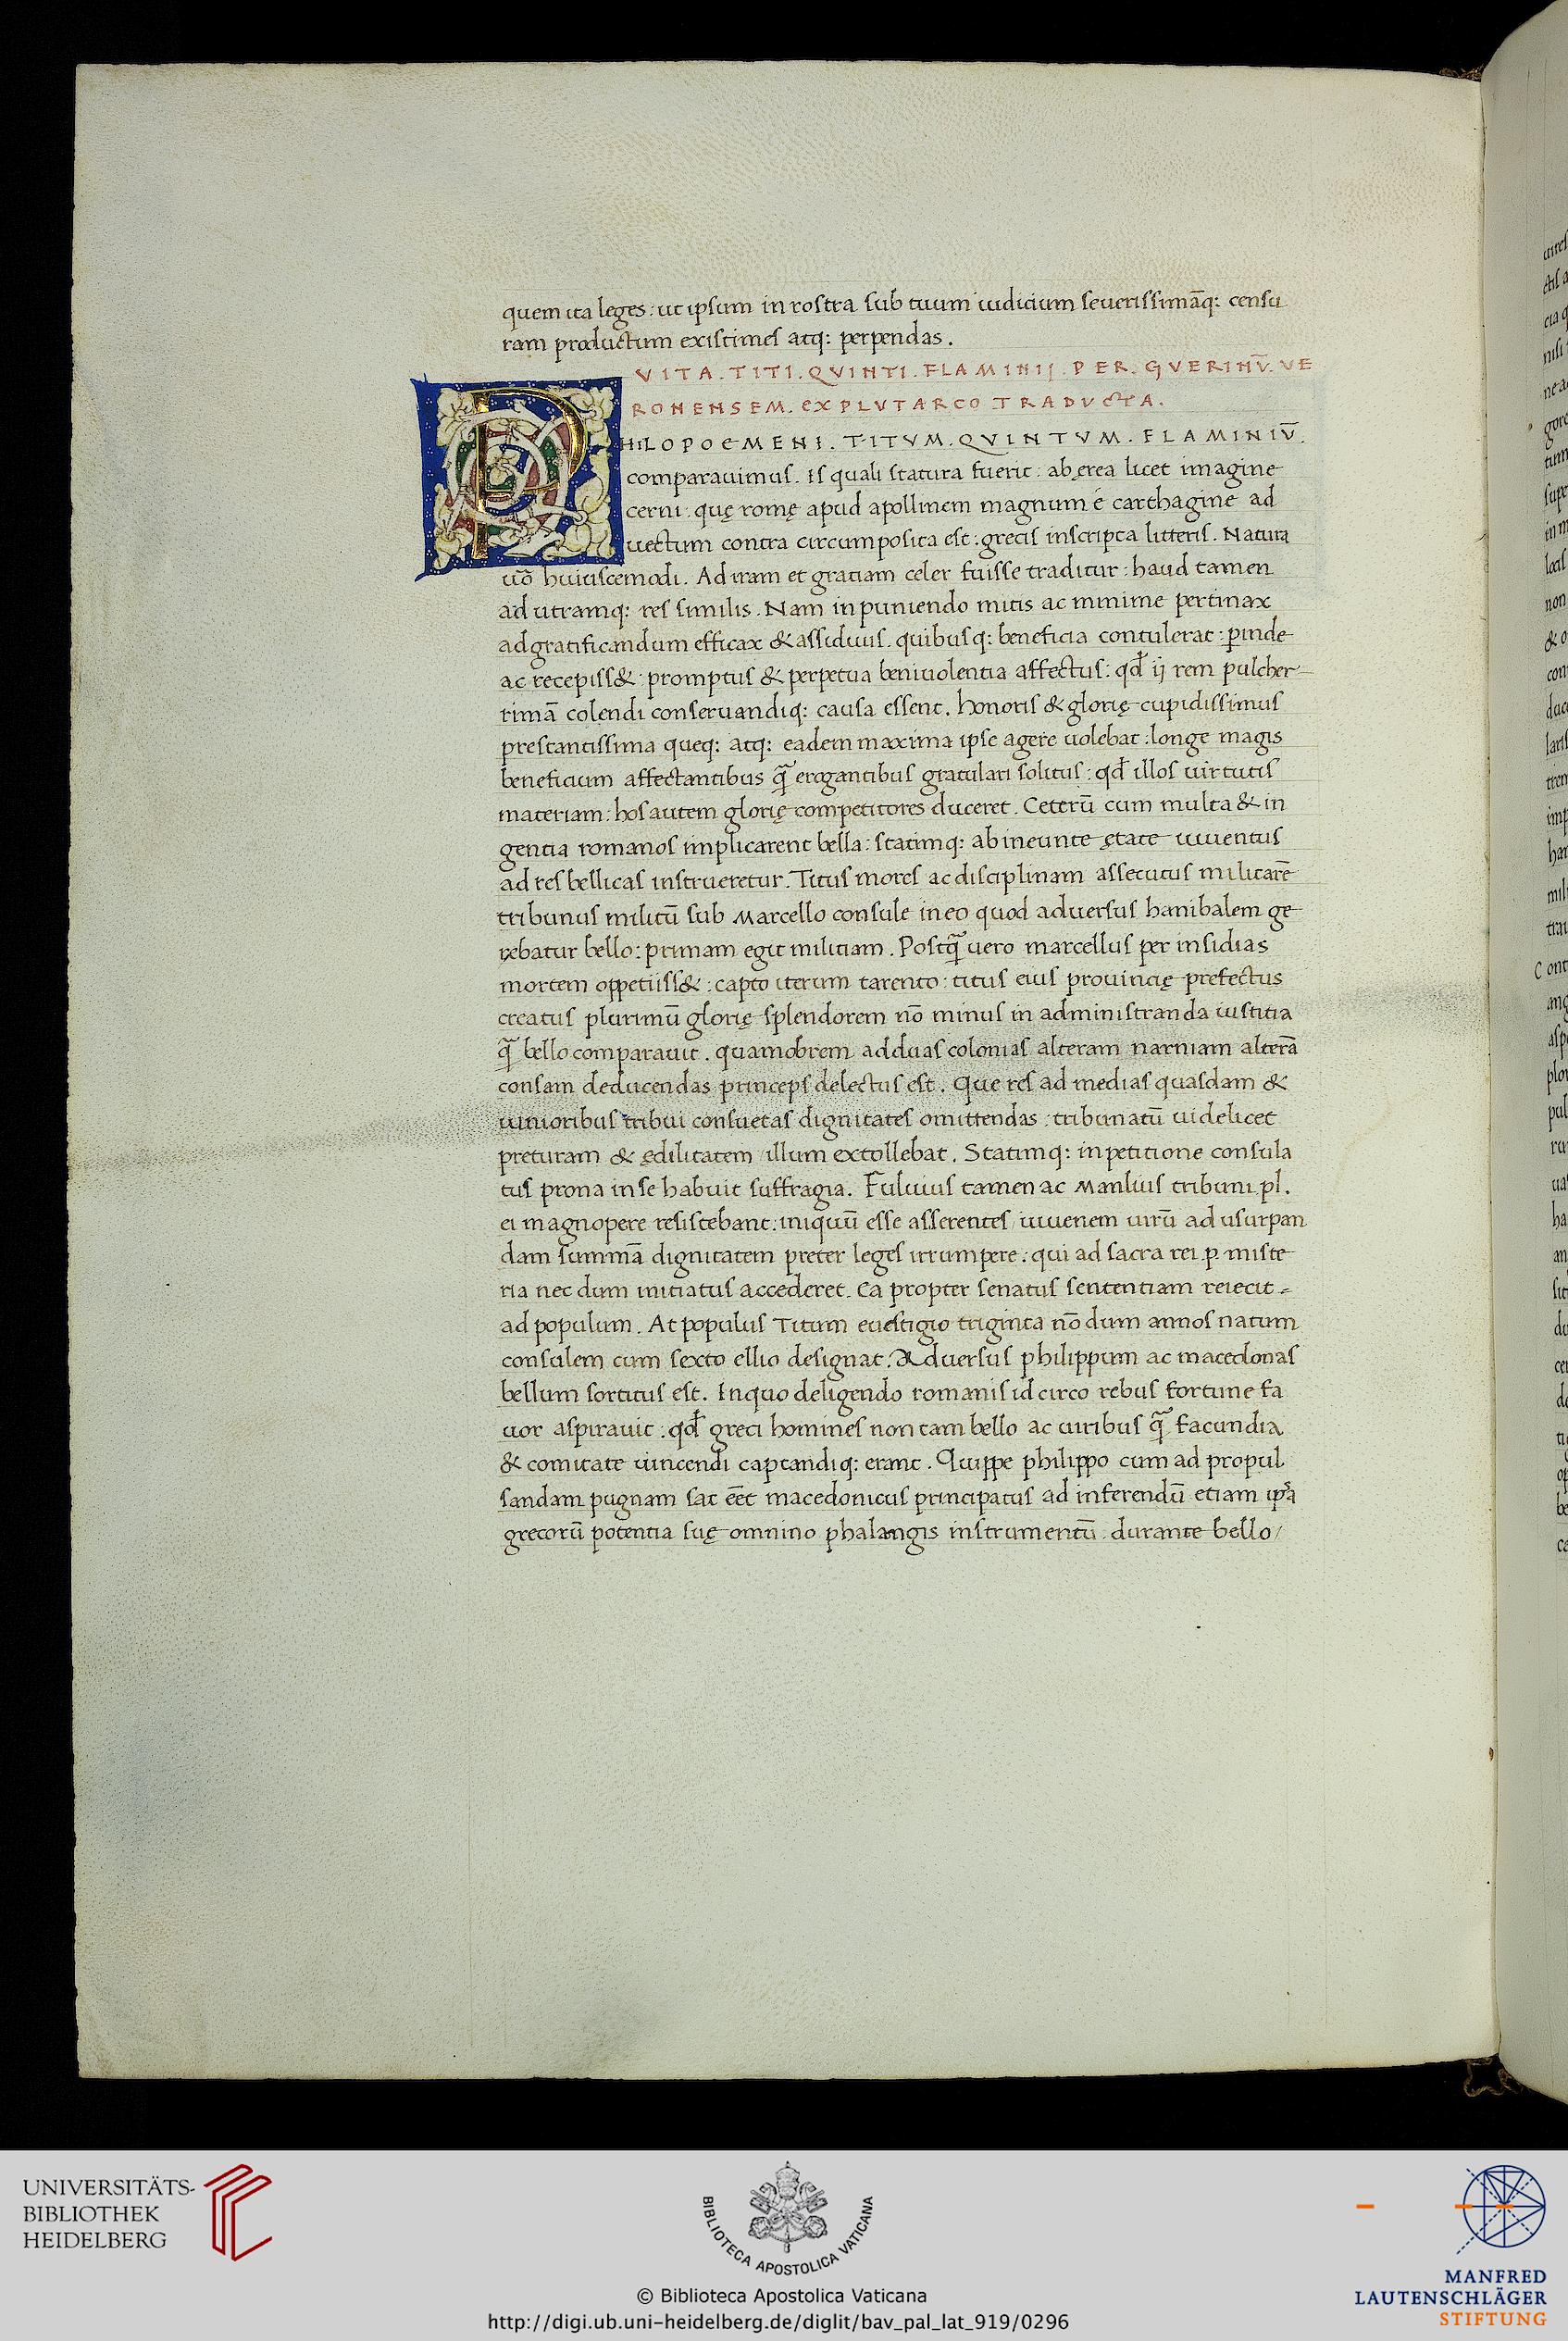 quem ita leges: ut ipsum in rostra sub tuum iudicium seuerissimāq: censu
ram productum existimes atq: perpendas.
VITA. TITI. QVINTI. FLAMINIJ. PER. GVERINŪ. VE
RONENSEM. EX PLVTARCO TRADVCTA.
PHILOPOEMENI. TITVM. QVINTVM. FLAMINIŪ.
comparauimus. Is quali statura fuerit: ab ęrea licet imagine
cerni. quę romę apud apollinem magnum é carthagine ad
uectum contra circumposita est: grecis inscripta litteris. Natura
uō huiuscemodi. Ad iram et gratiam celer fuisse traditur: haud tamen
ad utramq: res similis. Nam in puniendo mitis ac minime pertinax
ad gratificandum efficax & assiduus. quibusq: beneficia contulerat: ꝑinde
ac recepiss&: promptus & perpetua beniuolentia affectus: qđ ij rem pulcher
rimā colendi conseruandiq: causa essent. honoris & glorię cupidissimus
prestantissima queq: atq: eadem maxima ipse agere uolebat: longe magis
beneficium affectantibus q̄ erogantibus gratulari solitus: qđ illos uirtutis
materiam: hos autem glorię competitores duceret. Ceterū cum multa & in
gentia romanos implicarent bella: statimq: ab ineunte ętate iuuentus
ad res bellicas instrueretur. Titus mores ac disciplinam assecutus militarē
tribunus militū sub Marcello consule in eo quod aduersus hanibalem ge
rebatur bello: primam egit militiam. Postq̄ uero marcellus per insidias
mortem oppetiiss&: capto iterum tarento: titus eius prouincię prefectus
creatus plurimū glorię splendorem nō minus in administranda iustitia
q̄ bello comparauit. quamobrem ad duas colonias alteram narniam alterā
consam deducendas princeps delectus est. Que res ad medias quasdam &
iunioribus tribui consuetas dignitates omittendas: tribunatū uidelicet
preturam & ędilitatem illum extollebat. Statimq: in petitione consula
tus prona in se habuit suffragia. Fuluius tamen ac Manlius tribuni pl.
ei magnopere resistebant: iniquū esse asserentes iuuenem uirū ad usurpan
dam summā dignitatem preter leges irrumpere: qui ad sacra rei .p. miste
ria nec dum initiatus accederet. Ea propter senatus sententiam reiecit
ad populum. At populus Titum euestigio triginta nō dum annos natum
consulem cum sexto ellio designat. Aduersus philippum ac macedonas
bellum sortitus est. In quo deligendo romanis id circo rebus fortune fa
uor aspirauit: qđ greci homines non tam bello ac uiribus q̄ facundia
& comitate uincendi captandiq: erant. Quippe philippo cum ad propul
sandam pugnam sat eēt macedonicus principatus ad inferendū etiam
grecorū potentia suę omnino phalangis instrumentū. durante bello/
UNIVERSITÄTS-
BIBLIOTHEK
HEIDELBERG
BIBLIOTECA APOSTOLICA VATICANA
© Biblioteca Apostolica Vaticana
http://digi.ub.uni-heidelberg.de/diglit/bav_pal_lat_919/0296
MANFRED
LAUTENSCHLÄGER
STIFTUNG